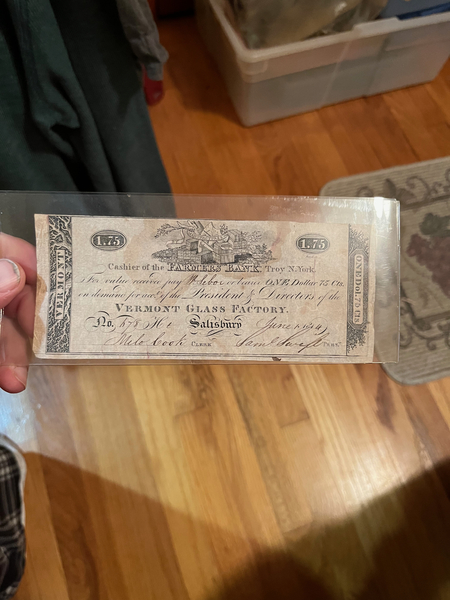 1.75
1.75
Cashier of the FARMERS BANK, Troy N.York.
For value receive pay or bearer ONE Dollar 75 Cts.
on demand for acct. of the President & Directors of the
VERMONT GLASS FACTORY.
No. Salisbury June
Milo Cook CLERK. Saml Swift TREAS.
VERMONT
ONE Dol. 75 Cts